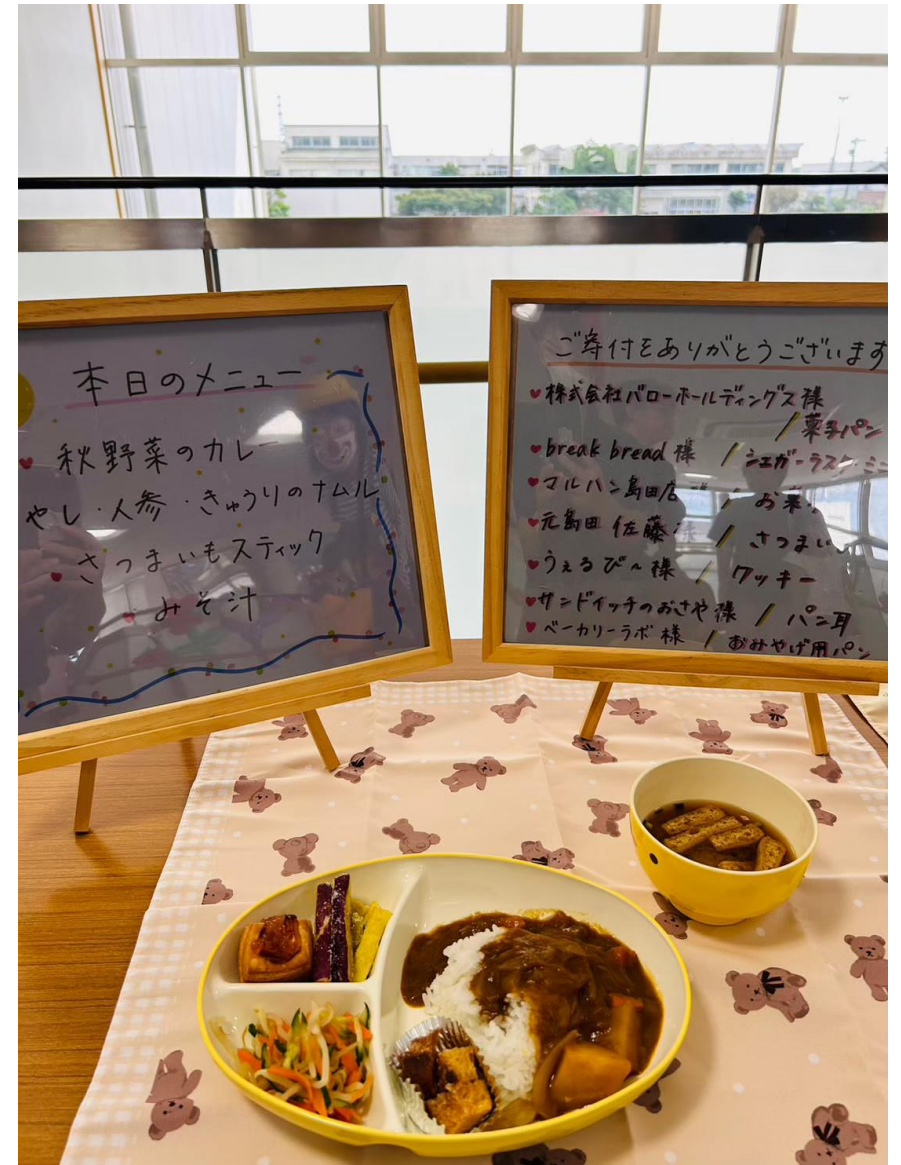 本日のメニュー
秋野菜のカレー
やし・人参・きゅうりのナムル
さつまいもスティック
みそ汁
ご寄付をありがとうございます
株式会社バローホールディングス様
/ 菓子パン
break bread 様 / シュガーラスク・ミニ
マルハン島田店 / お米
元島田 佐藤様 / さつまい
うぇるび〜様 / クッキー
サンドイッチのおさや様 / パン耳
ベーカリーラボ様 / おみやげ用パン